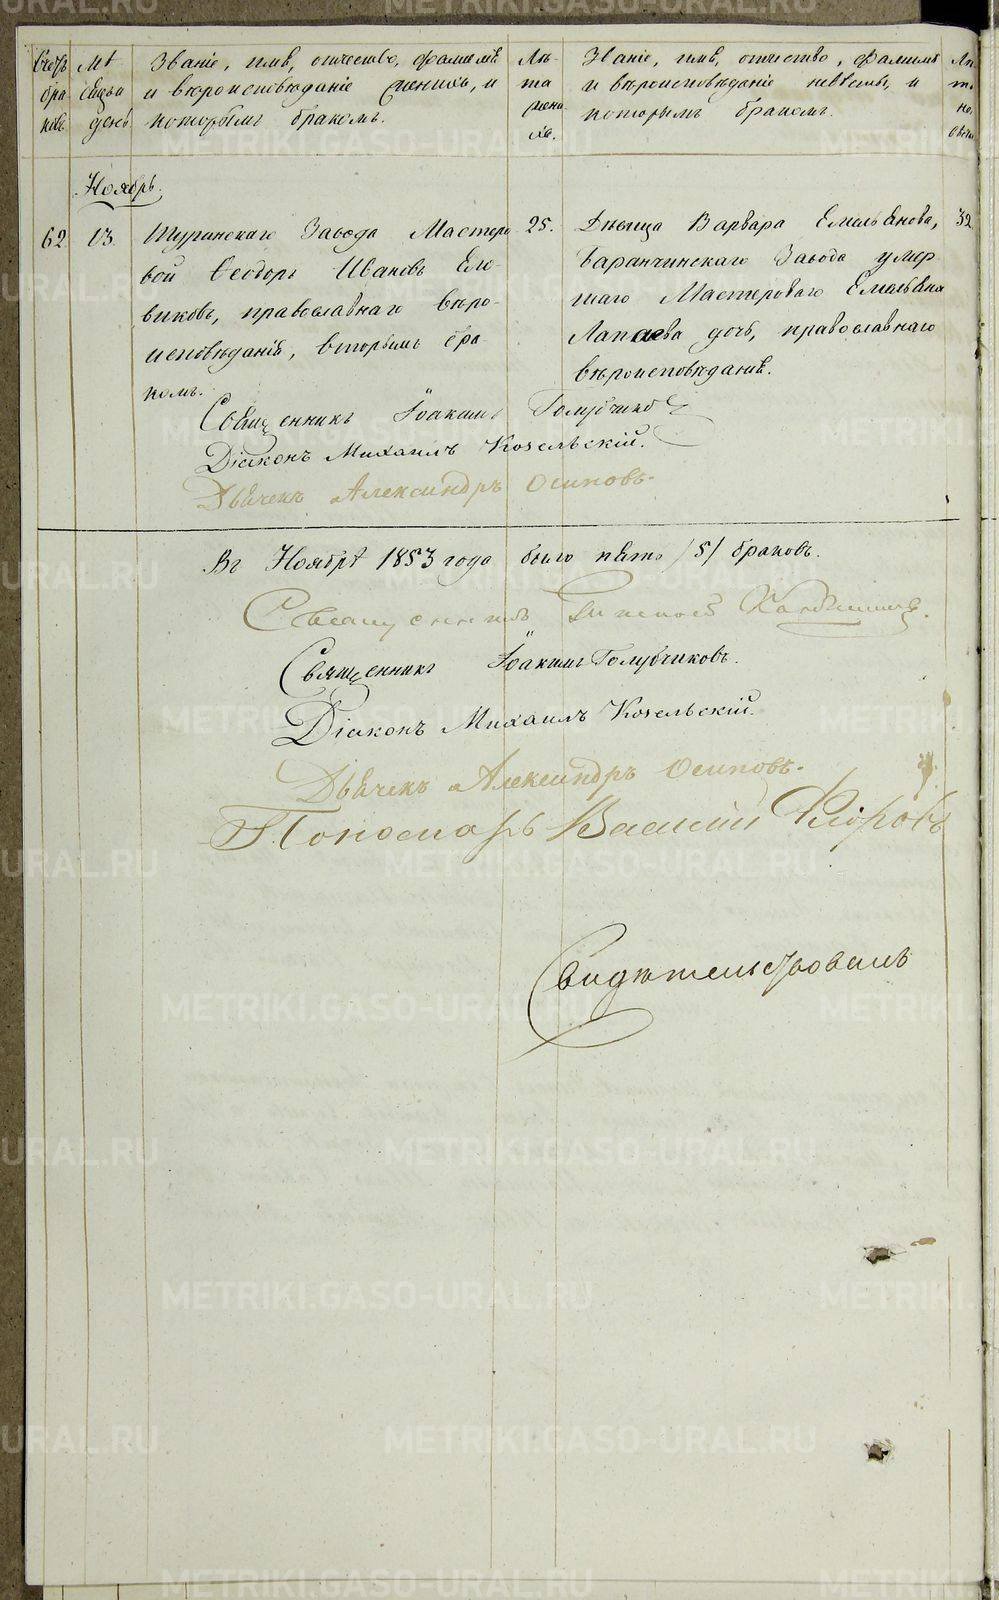 Счетъ браковъ
Мѣсяцъ день
Званіе, имя, отчество, фамилія
и вѣроисповѣданіе жениха, и
которымъ бракомъ.
Лѣта жениха.
Званіе, имя, отчество, фамилія
и вѣроисповѣданіе невѣсты, и
которымъ бракомъ.
Лѣта невѣсты
Ноябрь.
62
13.
Туринскаго Завода Мастеро
вой Ѳеодоръ Ивановъ Ело-
виковъ, православнаго вѣро-
исповѣданія, вторымъ бра
комъ.
25.
Дѣвица Варвара Емельянова,
Баранчинскаго Завода умер
шаго Мастероваго Емельяна
Лапаева дочь, православнаго
вѣроисповѣданія.
32
Священникъ Іоакимъ Голубчиковъ
Діаконъ Михаилъ Козельскій.
Дьячекъ Александръ Осиповъ.
Въ Ноябрѣ 1853 года было пять /5/ браковъ.
Священникъ
Священникъ Іоакимъ Голубчиковъ.
Діаконъ Михаилъ Козельскій.
Дьячекъ Александръ Осиповъ.
Пономарь Василій Флоровъ
Свидѣтельствовалъ
METRIKI.GASO-URAL.RU